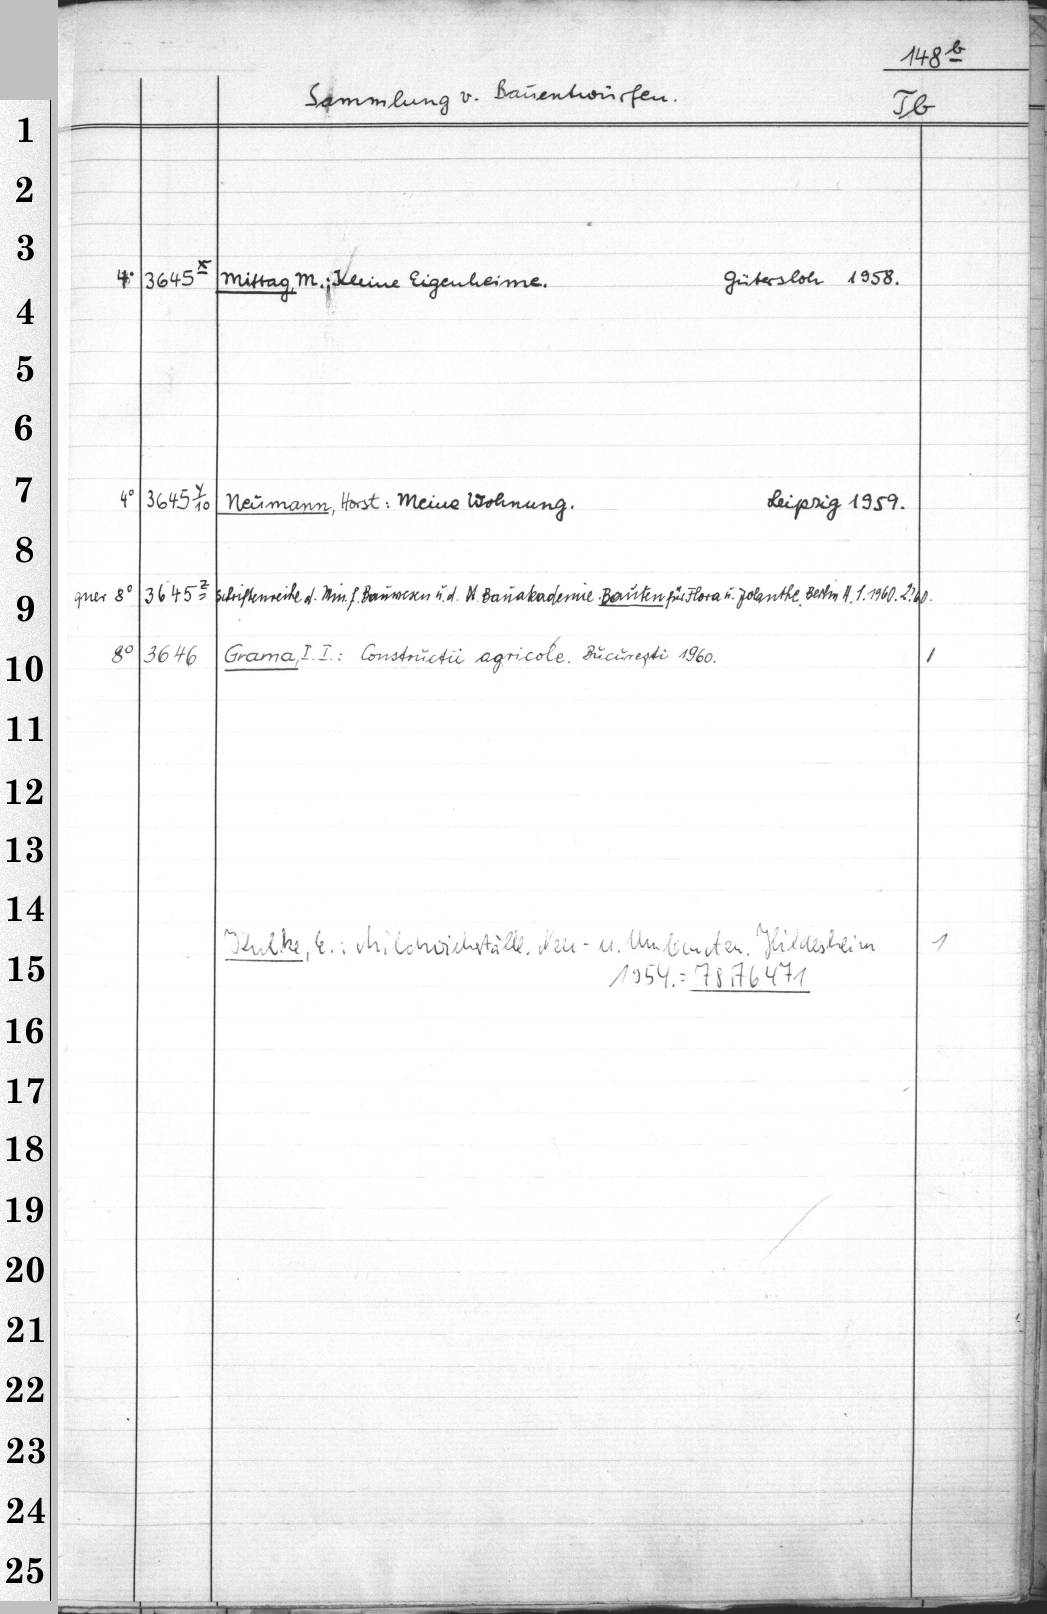 148 b
Sammlung v. Bauentwürfen.
Tb
1
2
3
4° 3645 x Mittag, M.: Kleine Eigenheime. Gütersloh 1958.
4
5
6
7
4° 3645 y/10 Neumann, Horst: Meine Wohnung. Leipzig 1959.
8
quer 8° 3645 z Schriftenreihe d. Min. f. Bauwesen u. d. Bauakademie. Bauten für Flora u. Jolanthe. Berlin H. 1. 1960. 2. 60.
9
8° 3646 Grama, I. I.: Constructii agricole. Bucureşti 1960. 1
10
11
12
13
14
Kulke, E.: Milchviehställe. Neu- u. Umbauten. Hildesheim 1
15
1954. = 78.76471
16
17
18
19
20
21
22
23
24
25